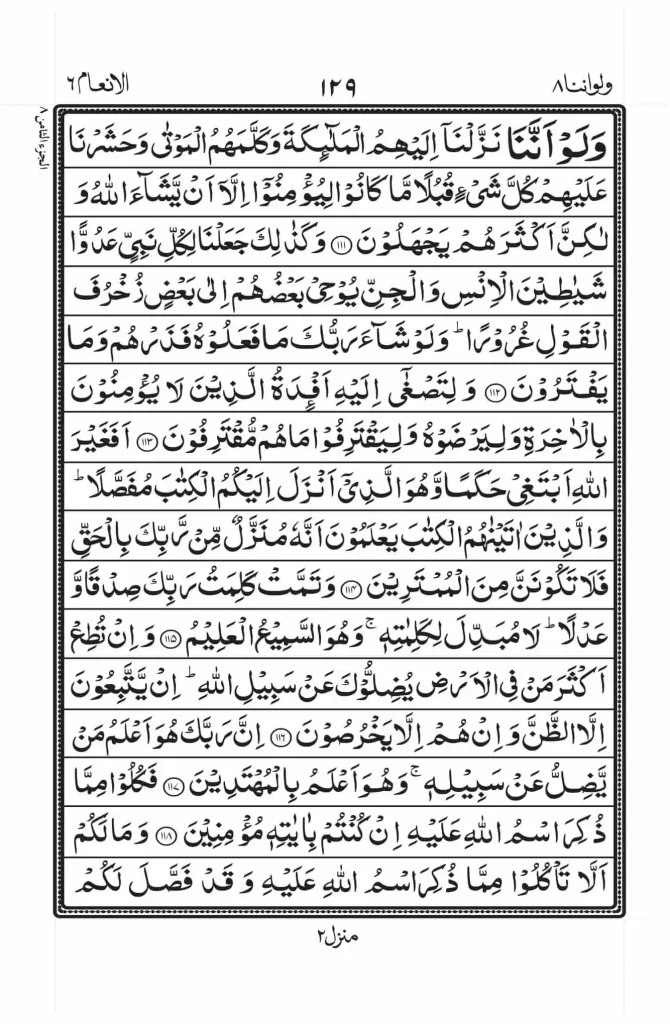 ولواننا۸ ۱۲۹ الانعام۶
الجزء الثامن ۸
وَلَوْ اَنَّنَا نَزَّلْنَاۤ اِلَیْهِمُ الْمَلٰٓىِٕكَةَ وَكَلَّمَهُمُ الْمَوْتٰی وَحَشَرْنَا
عَلَیْهِمْ كُلَّ شَیْءٍ قُبُلًا مَّا كَانُوْا لِیُؤْمِنُوْۤا اِلَّاۤ اَنْ یَّشَآءَ اللّٰهُ وَ
لٰكِنَّ اَكْثَرَهُمْ یَجْهَلُوْنَ ۝۱۱۱ وَكَذٰلِكَ جَعَلْنَا لِكُلِّ نَبِیٍّ عَدُوًّا
شَیٰطِیْنَ الْاِنْسِ وَالْجِنِّ یُوْحِیْ بَعْضُهُمْ اِلٰی بَعْضٍ زُخْرُفَ
الْقَوْلِ غُرُوْرًا ؕ وَلَوْ شَآءَ رَبُّكَ مَا فَعَلُوْهُ فَذَرْهُمْ وَمَا
یَفْتَرُوْنَ ۝۱۱۲ وَ لِتَصْغٰۤی اِلَیْهِ اَفْـِٕدَةُ الَّذِیْنَ لَا یُؤْمِنُوْنَ
بِالْاٰخِرَةِ وَلِیَرْضَوْهُ وَلِیَقْتَرِفُوْا مَا هُمْ مُّقْتَرِفُوْنَ ۝۱۱۳ اَفَغَیْرَ
اللّٰهِ اَبْتَغِیْ حَكَمًا وَّهُوَ الَّذِیْۤ اَنْزَلَ اِلَیْكُمُ الْكِتٰبَ مُفَصَّلًا ؕ
وَالَّذِیْنَ اٰتَیْنٰهُمُ الْكِتٰبَ یَعْلَمُوْنَ اَنَّهٗ مُنَزَّلٌ مِّنْ رَّبِّكَ بِالْحَقِّ
فَلَا تَكُوْنَنَّ مِنَ الْمُمْتَرِیْنَ ۝۱۱۴ وَتَمَّتْ كَلِمَتُ رَبِّكَ صِدْقًا وَّ
عَدْلًا ؕ لَا مُبَدِّلَ لِكَلِمٰتِهٖ ۚ وَهُوَ السَّمِیْعُ الْعَلِیْمُ ۝۱۱۵ وَ اِنْ تُطِعْ
اَكْثَرَ مَنْ فِی الْاَرْضِ یُضِلُّوْكَ عَنْ سَبِیْلِ اللّٰهِ ؕ اِنْ یَّتَّبِعُوْنَ
اِلَّا الظَّنَّ وَ اِنْ هُمْ اِلَّا یَخْرُصُوْنَ ۝۱۱۶ اِنَّ رَبَّكَ هُوَ اَعْلَمُ مَنْ
یَّضِلُّ عَنْ سَبِیْلِهٖ ۚ وَهُوَ اَعْلَمُ بِالْمُهْتَدِیْنَ ۝۱۱۷ فَكُلُوْا مِمَّا
ذُكِرَ اسْمُ اللّٰهِ عَلَیْهِ اِنْ كُنْتُمْ بِاٰیٰتِهٖ مُؤْمِنِیْنَ ۝۱۱۸ وَ مَا لَكُمْ
اَلَّا تَاْكُلُوْا مِمَّا ذُكِرَ اسْمُ اللّٰهِ عَلَیْهِ وَ قَدْ فَصَّلَ لَكُمْ
منزل۲